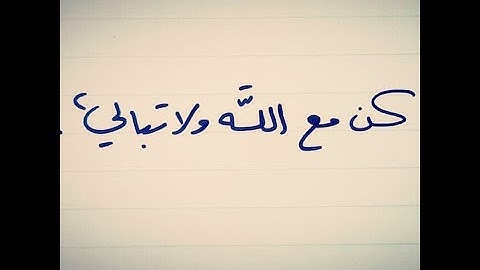 كن مع اللَّه ولا تبالي، .